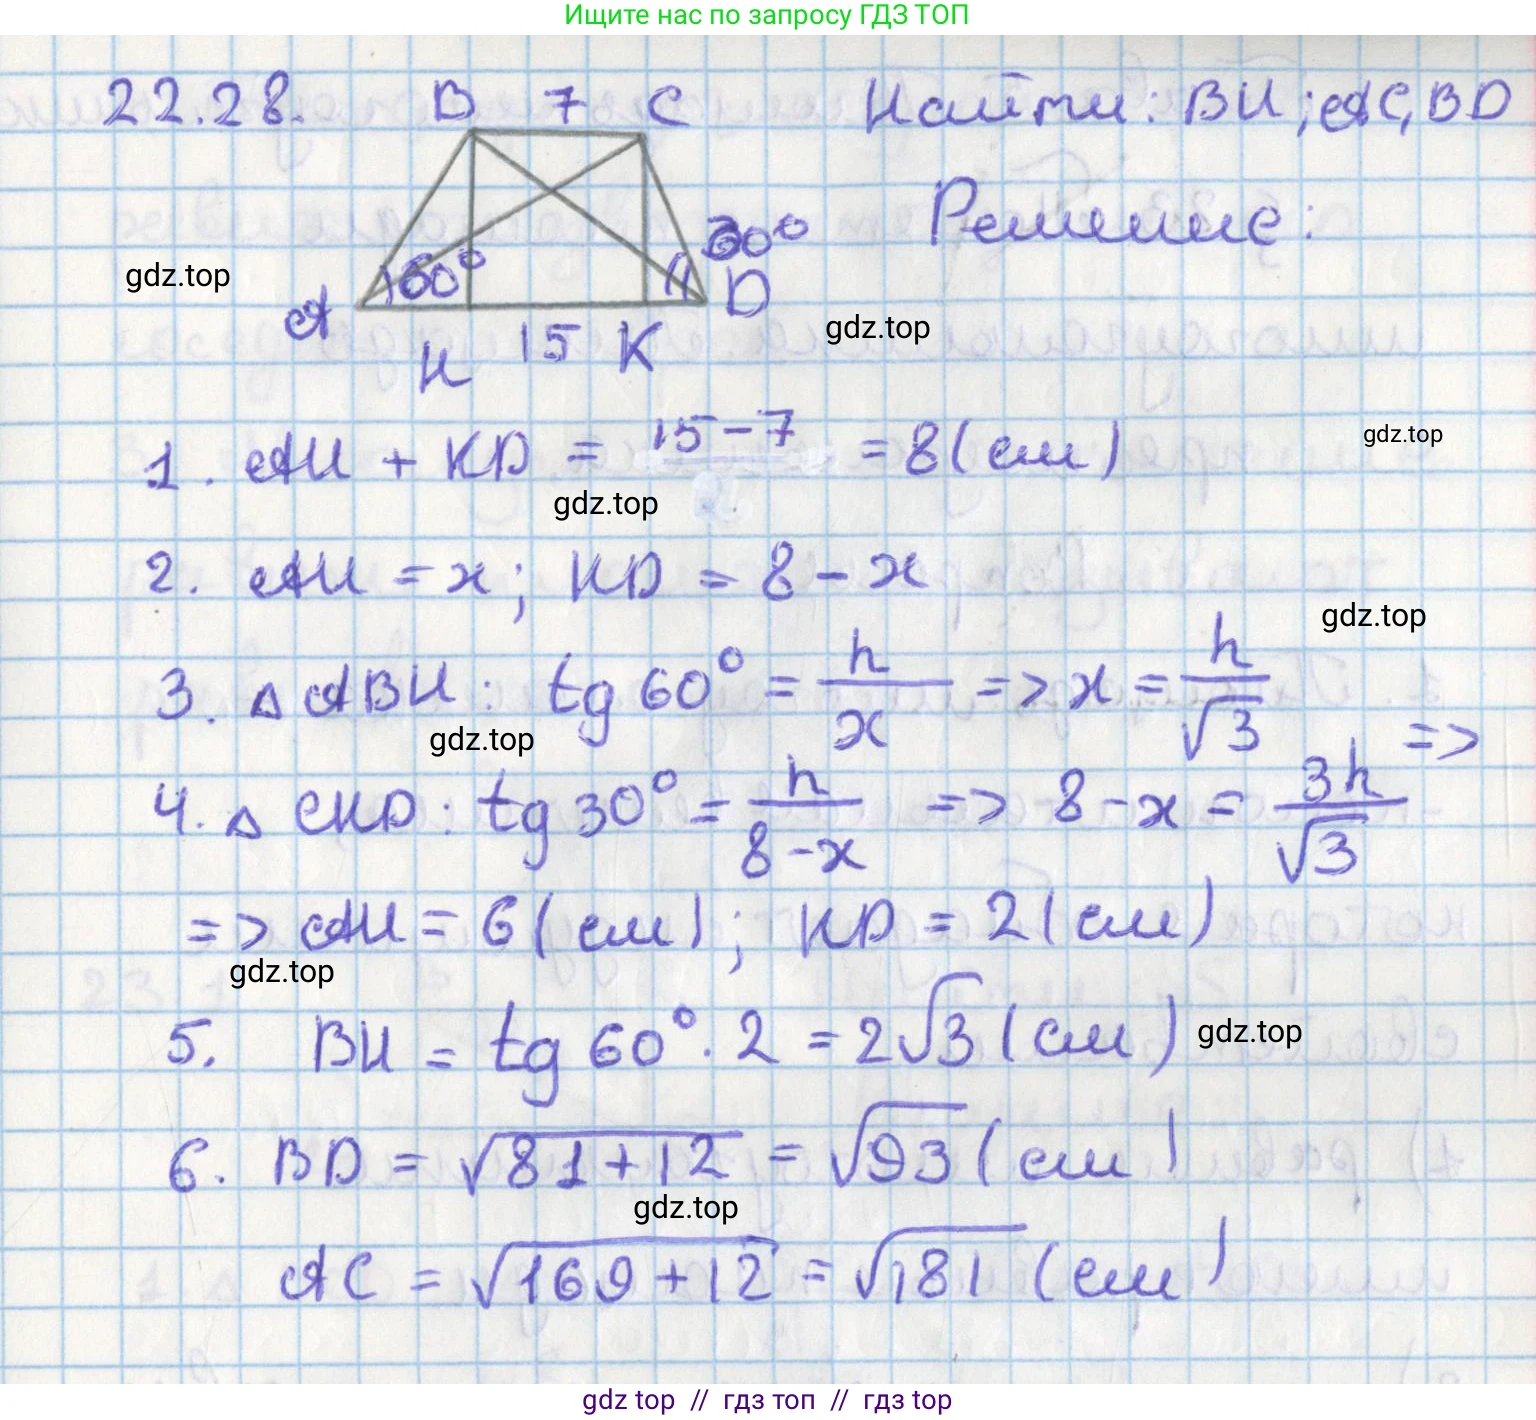 Ищите нас по запросу ГДЗ ТОП
22.28. B 7 C Найти: BH; AC, BD
Решение:
60° 30°
gdz.top
A D
gdz.top
H 15 K
1. AH + KD = 15-7 = 8 (см)
gdz.top
gdz.top
2. AH = x; KD = 8 - x
gdz.top
3. △ ABH: tg 60° = h/x => x = h/√3 =>
gdz.top
4. △ CKD: tg 30° = h/8-x => 8 - x = 3h/√3
=> AH = 6 (см); KD = 2 (см)
gdz.top
5. BH = tg 60° · 2 = 2√3 (см)
gdz.top
6. BD = √81+12 = √93 (см)
gdz.top
AC = √169+12 = √181 (см)
gdz top // гдз топ // гдз top